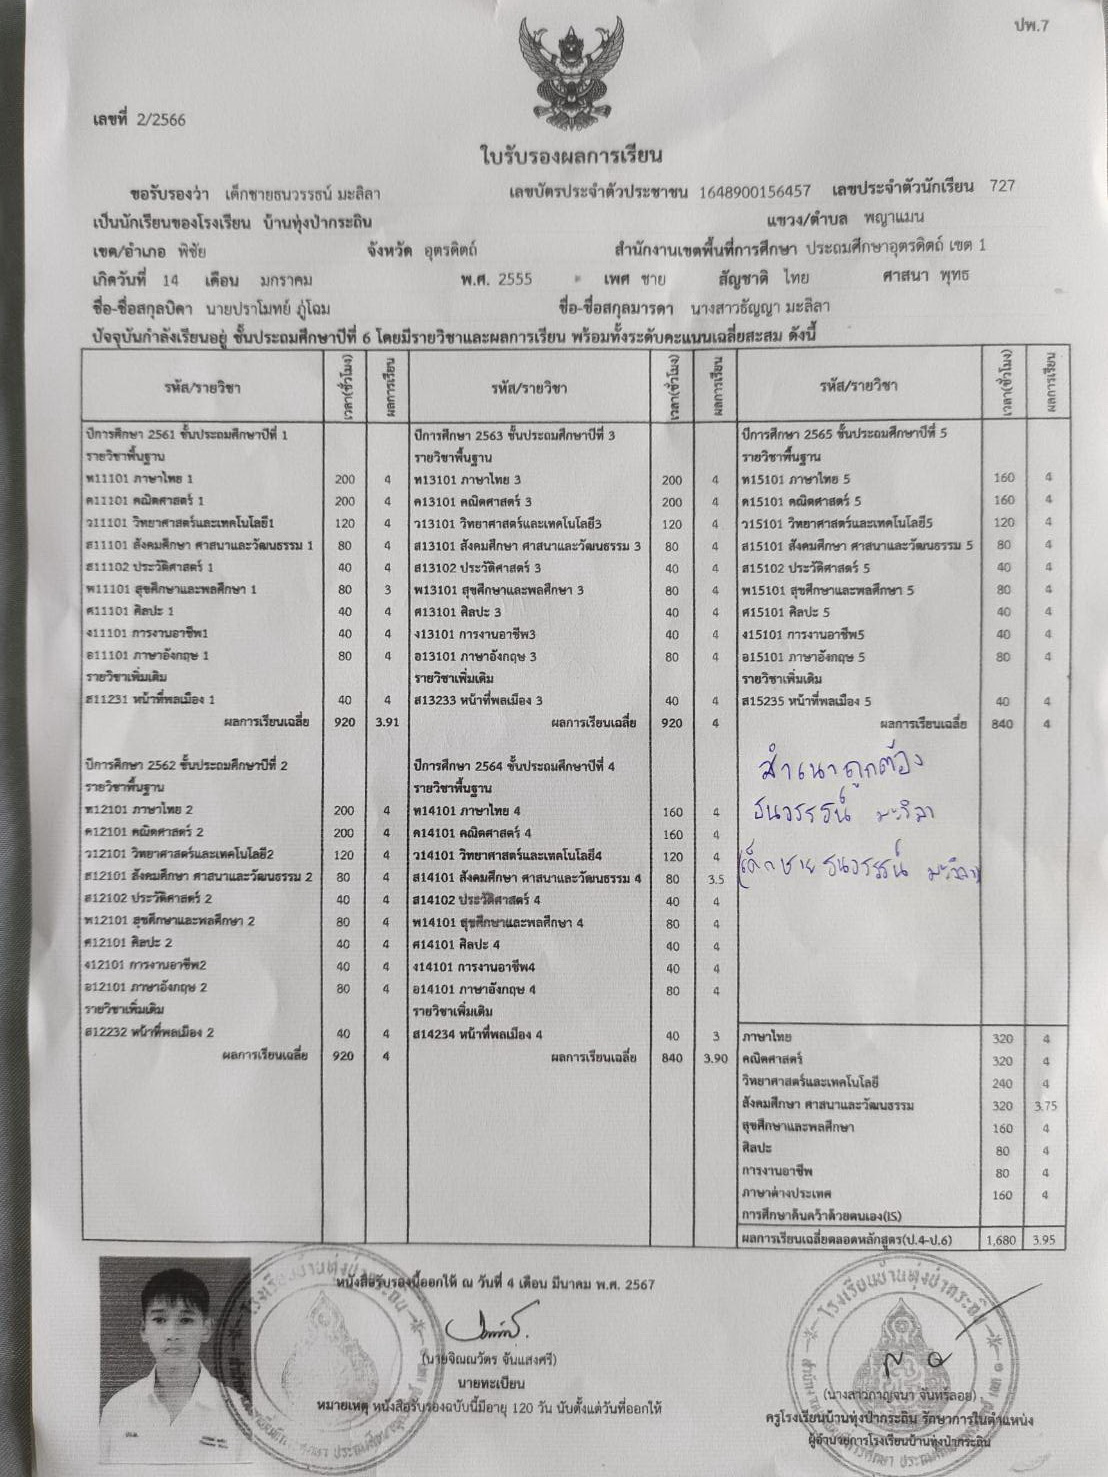 ปพ.7
เลขที่ 2/2566
ใบรับรองผลการเรียน
ขอรับรองว่า เด็กชายธนวรรธน์ มะลิลา เลขบัตรประจำตัวประชาชน 1648900156457 เลขประจำตัวนักเรียน 727
เป็นนักเรียนของโรงเรียน บ้านทุ่งป่ากระถิน แขวง/ตำบล พญาแมน
เขต/อำเภอ พิชัย จังหวัด อุตรดิตถ์ สำนักงานเขตพื้นที่การศึกษา ประถมศึกษาอุตรดิตถ์ เขต 1
เกิดวันที่ 14 เดือน มกราคม พ.ศ. 2555 เพศ ชาย สัญชาติ ไทย ศาสนา พุทธ
ชื่อ-ชื่อสกุลบิดา นายปราโมทย์ ภู่โฉม ชื่อ-ชื่อสกุลมารดา นางสาวธัญญา มะลิลา
ปัจจุบันกำลังเรียนอยู่ ชั้นประถมศึกษาปีที่ 6 โดยมีรายวิชาและผลการเรียน พร้อมทั้งระดับคะแนนเฉลี่ยสะสม ดังนี้
รหัส/รายวิชา เวลา(ชั่วโมง) ผลการเรียน รหัส/รายวิชา เวลา(ชั่วโมง) ผลการเรียน รหัส/รายวิชา เวลา(ชั่วโมง) ผลการเรียน
ปีการศึกษา 2561 ชั้นประถมศึกษาปีที่ 1
รายวิชาพื้นฐาน
ท11101 ภาษาไทย 1 200 4
ค11101 คณิตศาสตร์ 1 200 4
ว11101 วิทยาศาสตร์และเทคโนโลยี1 120 4
ส11101 สังคมศึกษา ศาสนาและวัฒนธรรม 1 80 4
ส11102 ประวัติศาสตร์ 1 40 4
พ11101 สุขศึกษาและพลศึกษา 1 80 3
ศ11101 ศิลปะ 1 40 4
ง11101 การงานอาชีพ1 40 4
อ11101 ภาษาอังกฤษ 1 80 4
รายวิชาเพิ่มเติม
ส11231 หน้าที่พลเมือง 1 40 4
ผลการเรียนเฉลี่ย 920 3.91
ปีการศึกษา 2562 ชั้นประถมศึกษาปีที่ 2
รายวิชาพื้นฐาน
ท12101 ภาษาไทย 2 200 4
ค12101 คณิตศาสตร์ 2 200 4
ว12101 วิทยาศาสตร์และเทคโนโลยี2 120 4
ส12101 สังคมศึกษา ศาสนาและวัฒนธรรม 2 80 4
ส12102 ประวัติศาสตร์ 2 40 4
พ12101 สุขศึกษาและพลศึกษา 2 80 4
ศ12101 ศิลปะ 2 40 4
ง12101 การงานอาชีพ2 40 4
อ12101 ภาษาอังกฤษ 2 80 4
รายวิชาเพิ่มเติม
ส12232 หน้าที่พลเมือง 2 40 4
ผลการเรียนเฉลี่ย 920 4
ปีการศึกษา 2563 ชั้นประถมศึกษาปีที่ 3
รายวิชาพื้นฐาน
ท13101 ภาษาไทย 3 200 4
ค13101 คณิตศาสตร์ 3 200 4
ว13101 วิทยาศาสตร์และเทคโนโลยี3 120 4
ส13101 สังคมศึกษา ศาสนาและวัฒนธรรม 3 80 4
ส13102 ประวัติศาสตร์ 3 40 4
พ13101 สุขศึกษาและพลศึกษา 3 80 4
ศ13101 ศิลปะ 3 40 4
ง13101 การงานอาชีพ3 40 4
อ13101 ภาษาอังกฤษ 3 80 4
รายวิชาเพิ่มเติม
ส13233 หน้าที่พลเมือง 3 40 4
ผลการเรียนเฉลี่ย 920 4
ปีการศึกษา 2564 ชั้นประถมศึกษาปีที่ 4
รายวิชาพื้นฐาน
ท14101 ภาษาไทย 4 160 4
ค14101 คณิตศาสตร์ 4 160 4
ว14101 วิทยาศาสตร์และเทคโนโลยี4 120 4
ส14101 สังคมศึกษา ศาสนาและวัฒนธรรม 4 80 3.5
ส14102 ประวัติศาสตร์ 4 40 4
พ14101 สุขศึกษาและพลศึกษา 4 80 4
ศ14101 ศิลปะ 4 40 4
ง14101 การงานอาชีพ4 40 4
อ14101 ภาษาอังกฤษ 4 80 4
รายวิชาเพิ่มเติม
ส14234 หน้าที่พลเมือง 4 40 3
ผลการเรียนเฉลี่ย 840 3.90
ปีการศึกษา 2565 ชั้นประถมศึกษาปีที่ 5
รายวิชาพื้นฐาน
ท15101 ภาษาไทย 5 160 4
ค15101 คณิตศาสตร์ 5 160 4
ว15101 วิทยาศาสตร์และเทคโนโลยี5 120 4
ส15101 สังคมศึกษา ศาสนาและวัฒนธรรม 5 80 4
ส15102 ประวัติศาสตร์ 5 40 4
พ15101 สุขศึกษาและพลศึกษา 5 80 4
ศ15101 ศิลปะ 5 40 4
ง15101 การงานอาชีพ5 40 4
อ15101 ภาษาอังกฤษ 5 80 4
รายวิชาเพิ่มเติม
ส15235 หน้าที่พลเมือง 5 40 4
ผลการเรียนเฉลี่ย 840 4
สำเนาถูกต้อง
ธนวรรธน์ มะลิลา
(เด็กชายธนวรรธน์ มะลิลา)
ภาษาไทย 320 4
คณิตศาสตร์ 320 4
วิทยาศาสตร์และเทคโนโลยี 240 4
สังคมศึกษา ศาสนาและวัฒนธรรม 320 3.75
สุขศึกษาและพลศึกษา 160 4
ศิลปะ 80 4
การงานอาชีพ 80 4
ภาษาต่างประเทศ 160 4
การศึกษาค้นคว้าด้วยตนเอง(IS)
ผลการเรียนเฉลี่ยตลอดหลักสูตร(ป.4-ป.6) 1,680 3.95
หนังสือรับรองนี้ออกให้ ณ วันที่ 4 เดือน มีนาคม พ.ศ. 2567
(นายจิณณวัตร จันแสงศรี)
นายทะเบียน
หมายเหตุ หนังสือรับรองฉบับนี้มีอายุ 120 วัน นับตั้งแต่วันที่ออกให้
โรงเรียนบ้านทุ่งป่ากระถิน
(นางสาวกาญจนา จันทร์ลอย)
ครูโรงเรียนบ้านทุ่งป่ากระถิน รักษาการในตำแหน่ง
ผู้อำนวยการโรงเรียนบ้านทุ่งป่ากระถิน